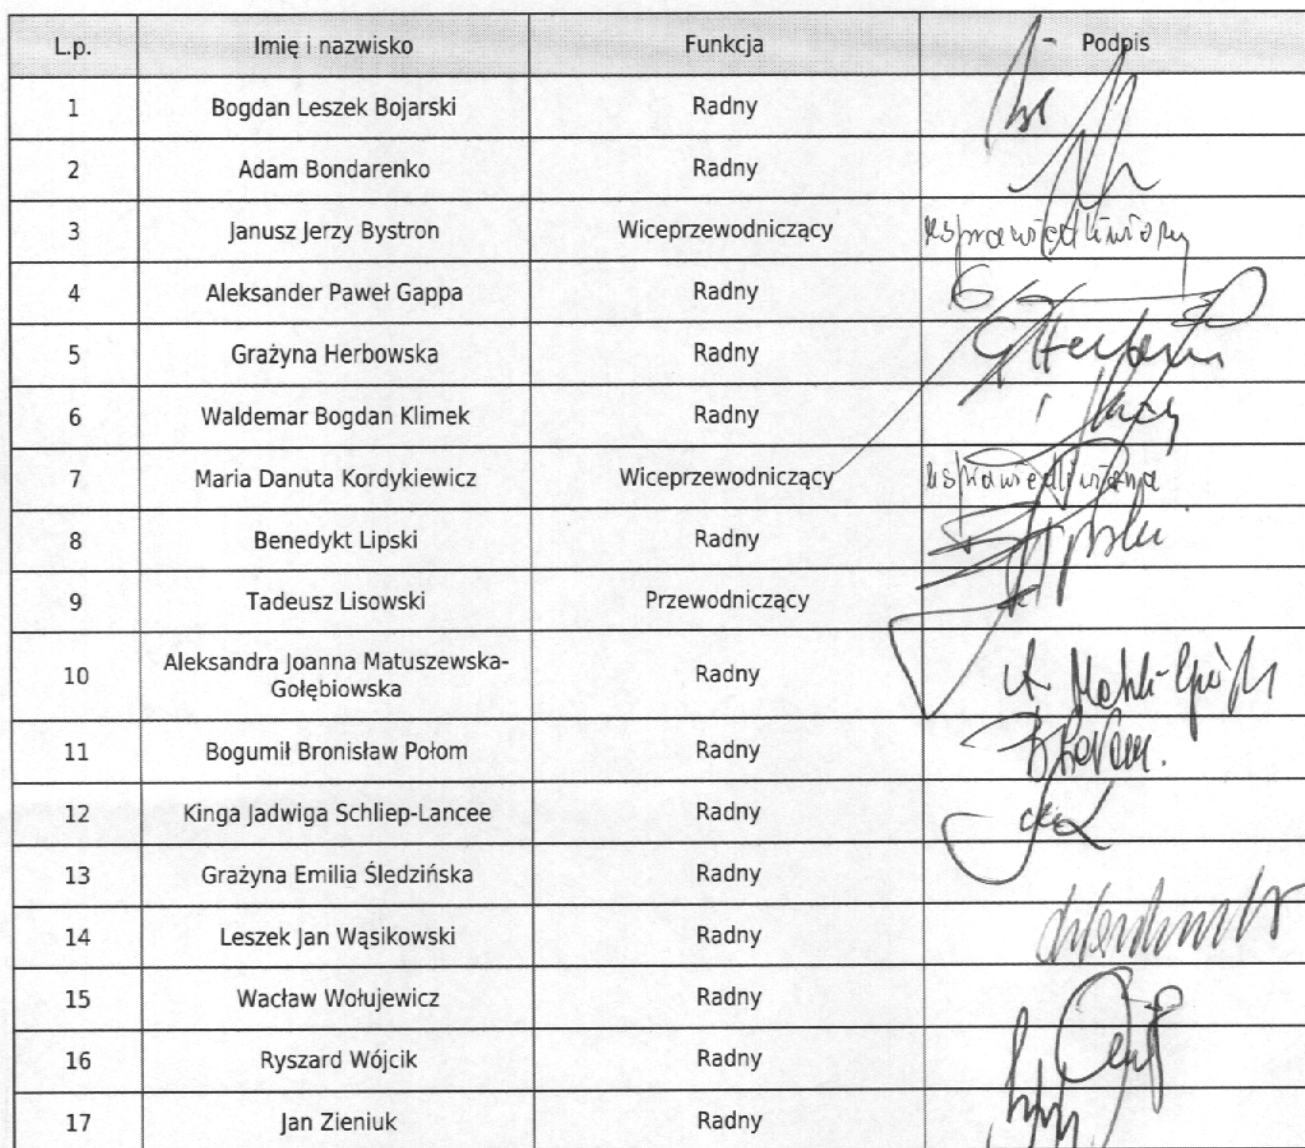 L.p. Imię i nazwisko Funkcja Podpis
1 Bogdan Leszek Bojarski Radny
2 Adam Bondarenko Radny
3 Janusz Jerzy Bystron Wiceprzewodniczący usprawiedliwiony
4 Aleksander Paweł Gappa Radny
5 Grażyna Herbowska Radny
6 Waldemar Bogdan Klimek Radny
7 Maria Danuta Kordykiewicz Wiceprzewodniczący usprawiedliwiona
8 Benedykt Lipski Radny
9 Tadeusz Lisowski Przewodniczący
10 Aleksandra Joanna Matuszewska-
Gołębiowska Radny
11 Bogumił Bronisław Połom Radny
12 Kinga Jadwiga Schliep-Lancee Radny
13 Grażyna Emilia Śledzińska Radny
14 Leszek Jan Wąsikowski Radny
15 Wacław Wołujewicz Radny
16 Ryszard Wójcik Radny
17 Jan Zieniuk Radny